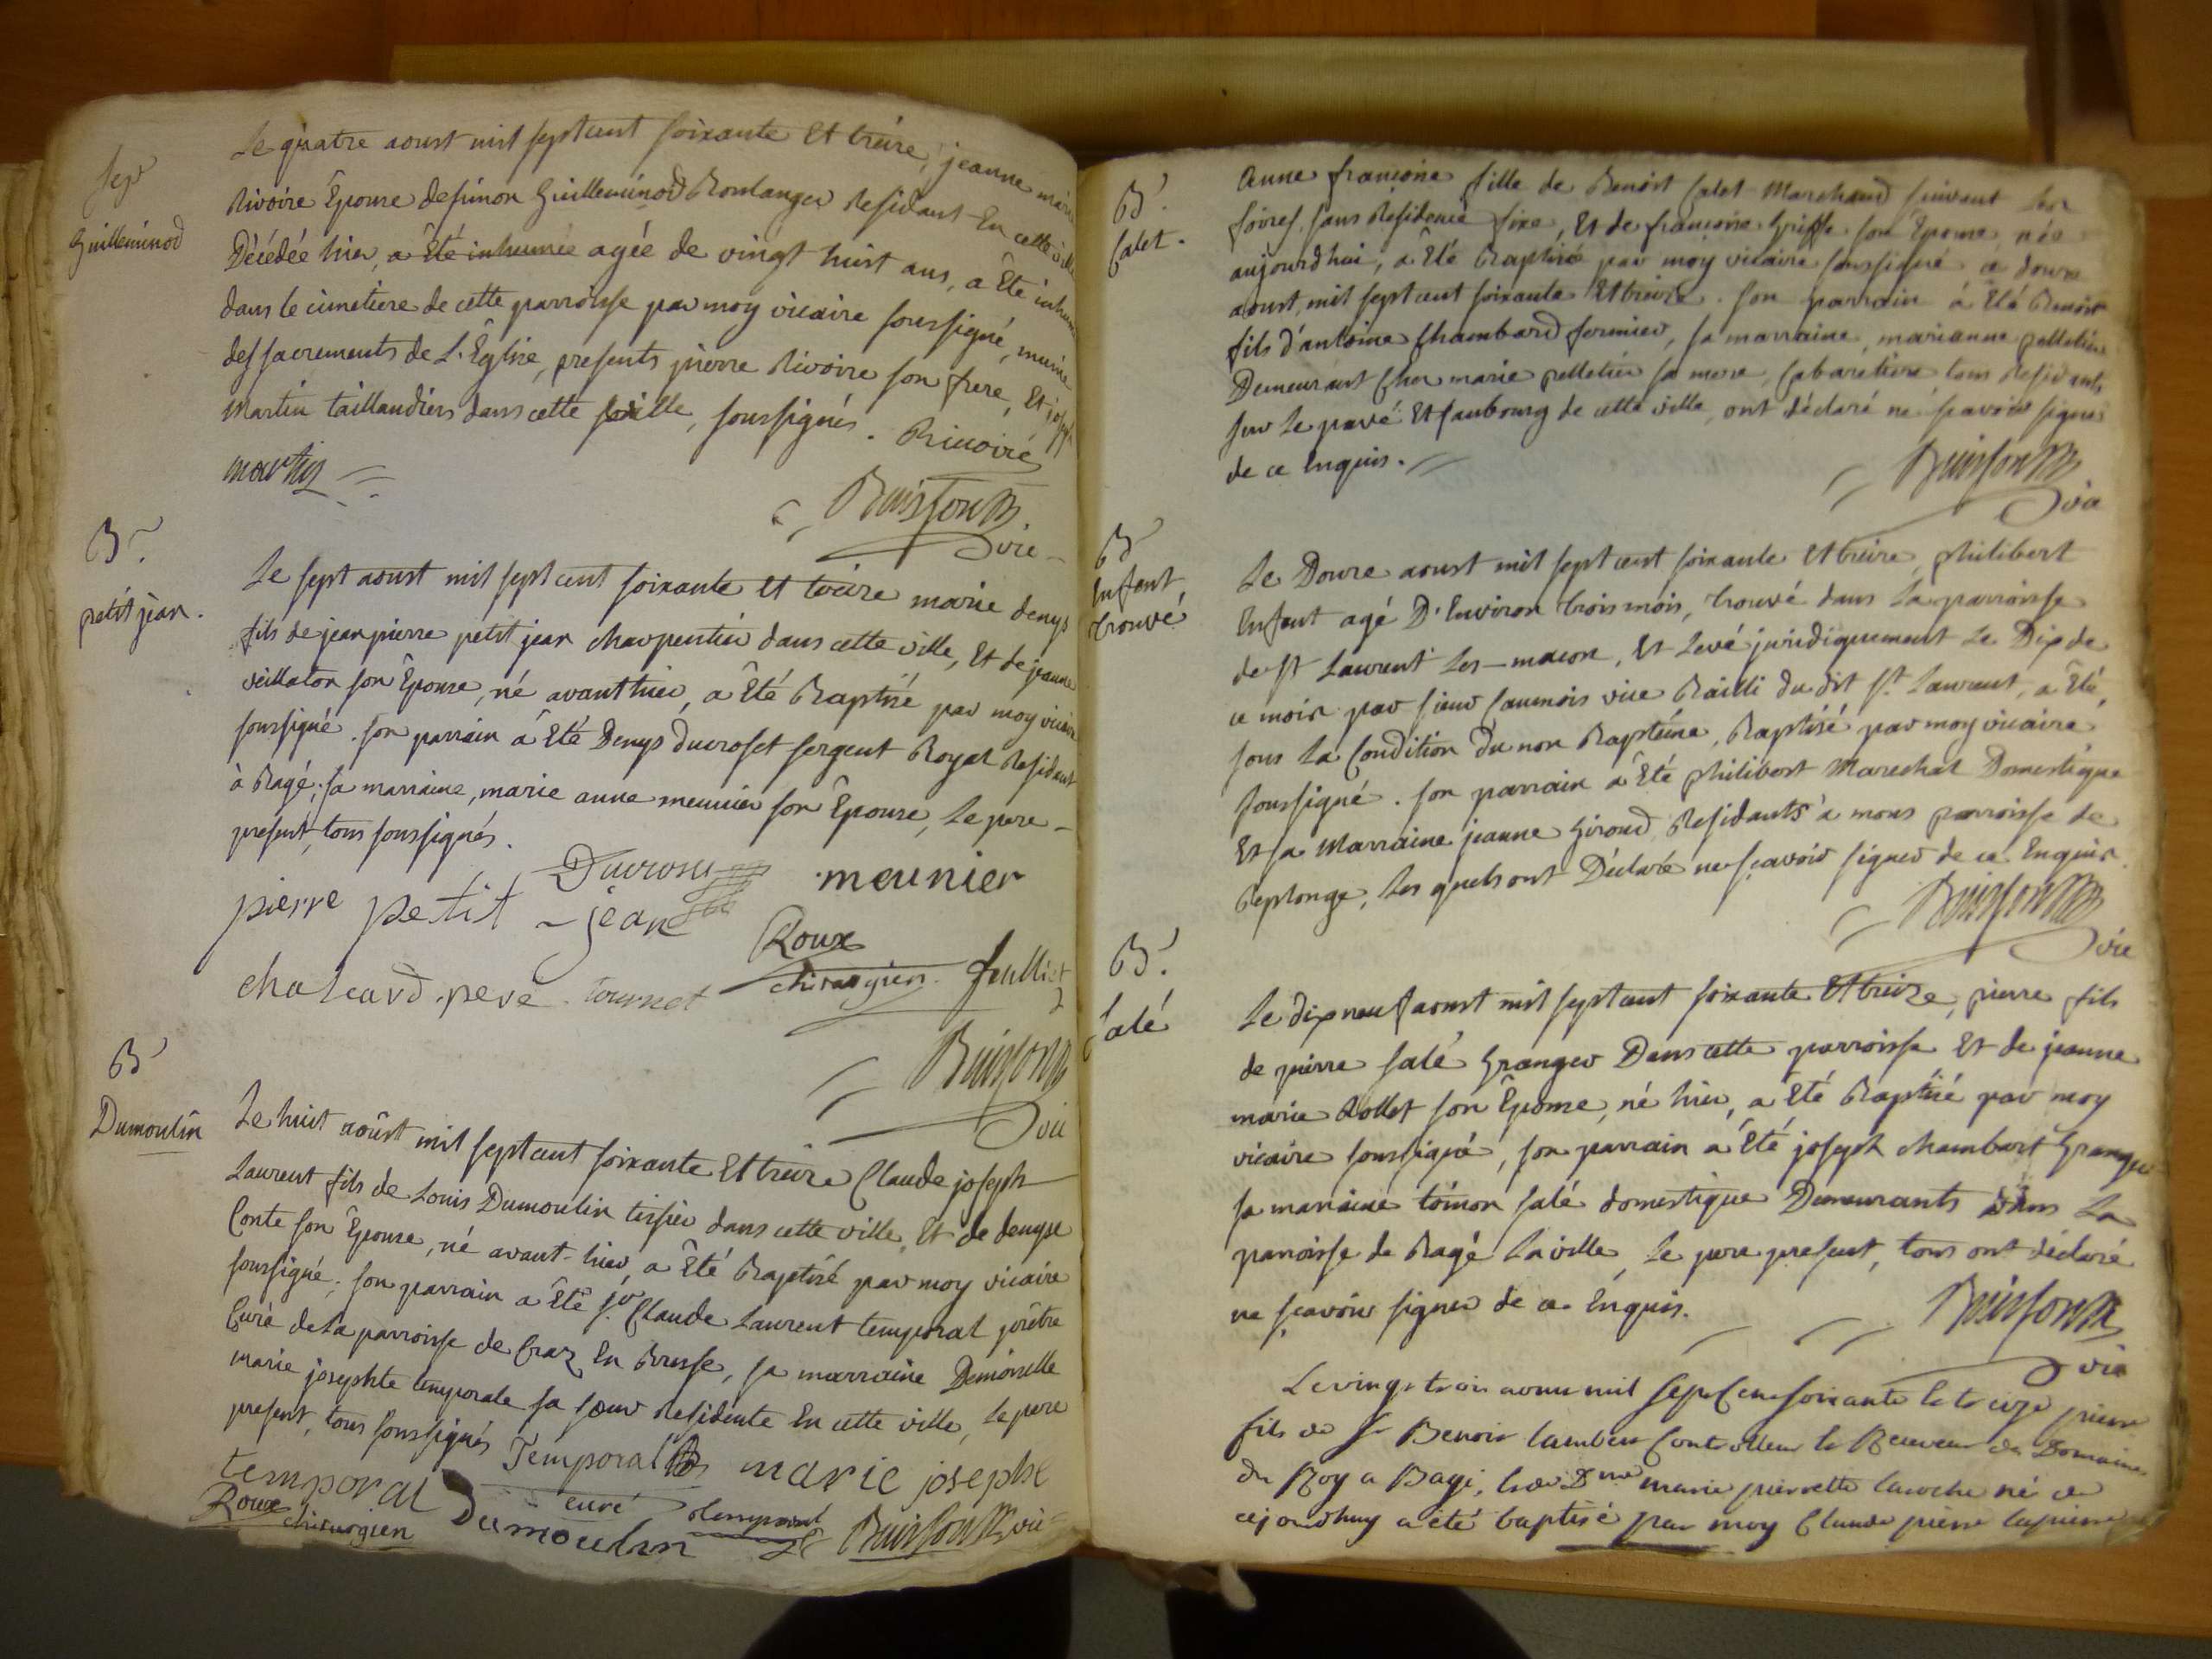 Sep^r
Guilleminod
Le quatre aoust mil sept cent soixante et treize, jeanne marie
Rivoire Épouse de simon Guilleminod Boulanger Residant En cette ville
Décédée hier, a Été inhumée agée de vingt huit ans, a Été inhumée
dans le cimetiere de cette parroisse par moy vicaire soussigné, munie
des sacrements de L'Église, presents pierre Rivoire son frere, Et joseph
Martin taillandiers dans cette ville, soussignés. Rivoire
martin
Buisson
vic
B^.
petit jean.
Le sept aoust mil sept cent soixante et treize marie denys
fils de jean pierre petit jean charpentier dans cette ville, Et de jeanne
veillaton son Épouse, né avant hier, a Été Baptisé par moy vicaire
soussigné. son parrain a Été Denys ducroset sergent Royal Residant
à Bagé; sa marraine, marie anne meunier son Épouse, Le pere
présent, tous soussignés.
Ducroset meunier
pierre petit-jean
Roux
chirurgien
chaleard pere tournet feulliet
Buisson
vic
B^
Dumoulin
Le huit aoust mil sept cent soixante Et treize Claude joseph
Laurent fils de Louis Dumoulin tissier dans cette ville, Et de denyse
Conte son Épouse, né avant-hier, a Été Baptisé par moy vicaire
soussigné; son parrain a Été s^r. Claude Laurent temporal prêtre
Curé de la parroisse de Craz En Bresse, sa marraine Demoiselle
marie josephte temporale sa sœur Residente En cette ville, Le pere
present, tous soussignés Temporal marie josephe
temporal curé
Roux chirurgien Dumoulin Buisson vic
B^.
Calet.
Anne françoise fille de Benoit Calet Marchand suivant Les
foires, sans Residence fixe, Et de françoise Griffe son Épouse, née
aujourdhui, a Été Baptisée par moy vicaire soussigné ce douze
aoust mil sept cent soixante Et treize. son parrain a Été Benoit
fils d'antoine Chambard fermier, sa marraine, marianne pelletier
Demeurant Chez marie pelletier sa mere, Cabaretiere, tous Residants
sur Le pavé Et faubourg de cette ville, ont déclaré ne scavoir signer
de ce Enquis.
Buisson
vic
B^
Enfant
trouvé
Le Douze aoust mil sept cent soixante Et treize, philibert
Enfant agé D'Environ trois mois, trouvé dans La parroisse
de st Laurent Les-macon, Et Levé juridiquement Le Dix de
ce mois par sieur Caumois vice Bailli du dit st. Laurent, a Été,
sous La Condition du non Baptéme, Baptisé par moy vicaire
soussigné. son parrain a Été philibert Marechal Domestique
Et sa Marraine jeanne Giroud Residants à mons parroisse de
Replonge, Les quels ont Déclaré ne scavoir signer de ce Enquis.
Buisson
vic
B^.
Salé
Le dix neuf aoust mil sept cent soixante Et treize, pierre fils
de pierre salé Granger Dans cette parroisse Et de jeanne
marie Rollet son Épouse, né hier, a Été Baptisé par moy
vicaire soussigné, son parrain a Été joseph chambart Granger
sa marraine toinon salé domestique Demeurants Dans La
parroisse de Bagé La ville, Le pere present, tous ont déclaré
ne scavoir signer de ce Enquis.
Buisson
vic
Le vingt trois aoust mil sept cens soixante et treize pierre
fils de sr Benoit lambert Controlleur et Receveur des Domaines
du Roy a Bagé, et de Dme marie pierrette laroche né de
cejourdhuy a été baptisé par moy Claude pierre